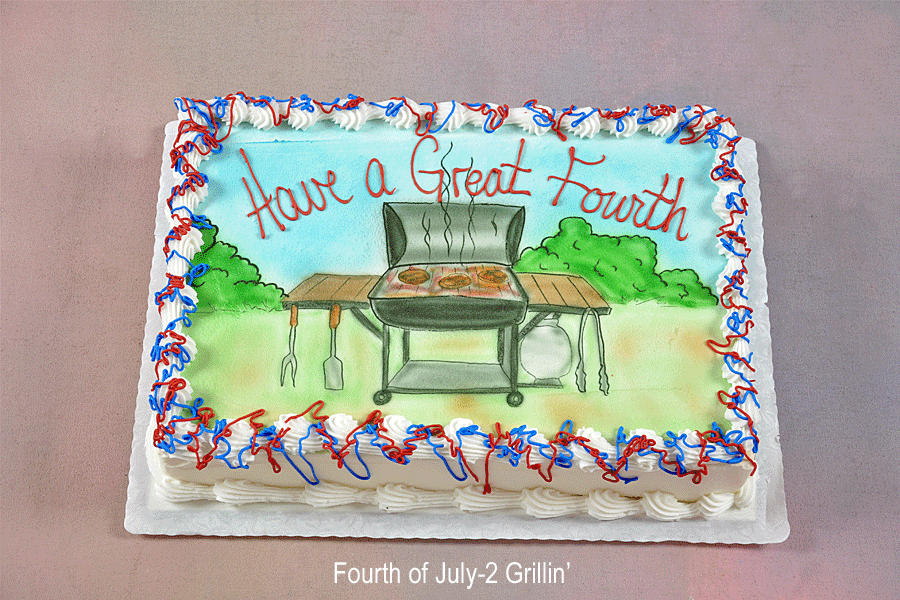 Have a Great Fourth
Fourth of July-2 Grillin’